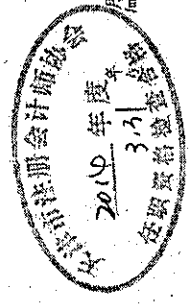 市注册会计师协会
2014 年度
3.31
任职资格检查合格